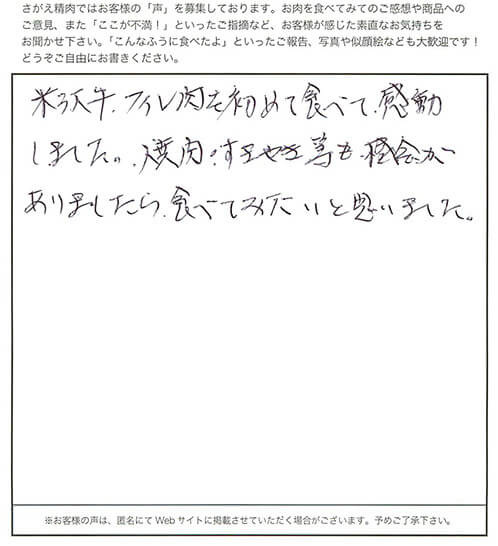 さがえ精肉ではお客様の「声」を募集しております。お肉を食べてみてのご感想や商品への
ご意見、また「ここが不満！」といったご指摘など、お客様が感じた素直なお気持ちを
お聞かせ下さい。「こんなふうに食べたよ」といったご報告、写真や似顔絵なども大歓迎です！
どうぞご自由にお書きください。
米沢牛、フィレ肉を初めて食べて、感動
しました。焼肉・すきやき等も機会が
ありましたら、食べてみたいと思いました。
※お客様の声は、匿名にて Web サイトに掲載させていただく場合がございます。予めご了承下さい。